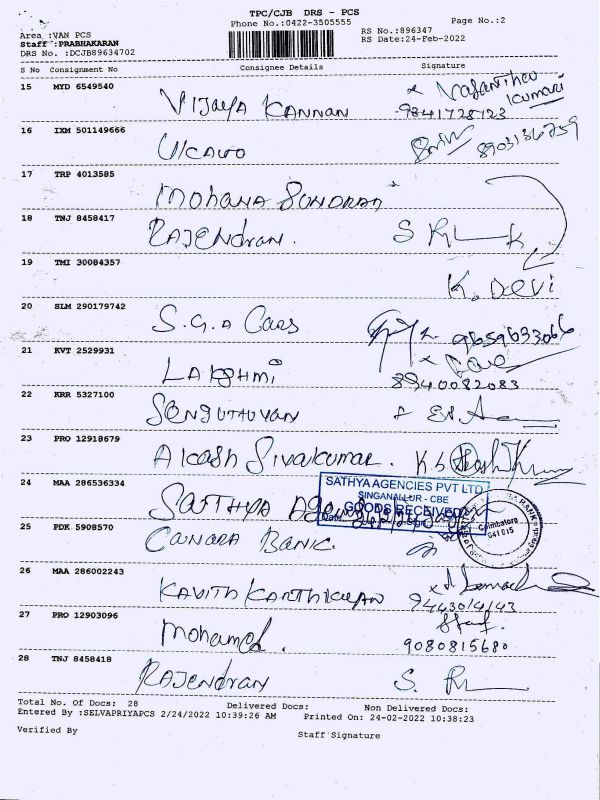 TPC/CJB DRS - PCS
Phone No.:0422-3505555
Page No.:2
Area :VAN PCS
RS No.:896347
Staff :PRABHAKARAN
RS Date:24-Feb-2022
DRS No. :DCJB89634702
S No Consignment No Consignee Details Signature
15 MYD 6549540 Vijaya Kannan Vasantha Kumari
9841728723
16 IXM 501149666 8903136759
17 TRP 4013585 Mohana Sundram
18 TNJ 8458417 Rajendran.
19 TMI 30084357 K. Devi
20 SLM 290179742 S.G.A Cars 9659633066
21 KVT 2529931 Lakshmi 8940082083
22 KRR 5327100 Senguthuvan
23 PRO 12918679 Akash Sivakumar. K.S Akash Kumar
24 MAA 286536334 Sathya Agencies
SATHYA AGENCIES PVT LTD
SINGANALLUR - CBE
GOODS RECEIVED
Date Sign
Coimbatore
641 015
25 PDK 5908570 Canara Bank.
26 MAA 286002243 Kavith Karthikeyan 9443014143
27 PRO 12903096 Mohamed. Staf.
9080815680
28 TNJ 8458418 Rajendran
Total No. Of Docs: 28 Delivered Docs: Non Delivered Docs:
Entered By :SELVAPRIYAPCS 2/24/2022 10:39:26 AM Printed On: 24-02-2022 10:38:23
Verified By Staff Signature